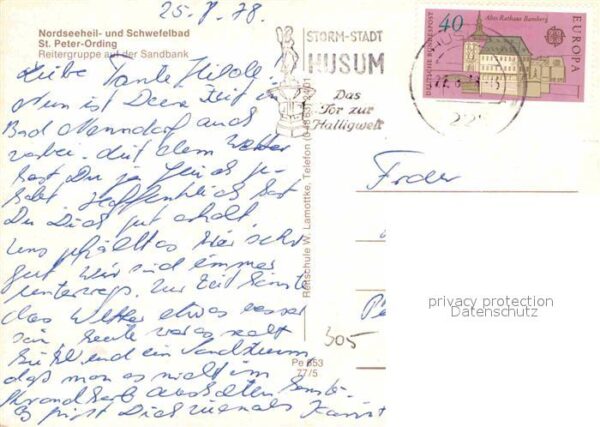 25. 8. 78.
Nordseeheil- und Schwefelbad
St. Peter-Ording
Reitergruppe auf der Sandbank
Liebe Tante Hilde!
Nun ist Deine Zeit in
Bad Nenndorf auch
vorbei. Mit dem Wetter
hast Du ja Glück ge-
habt. Hoffentlich hast
Du Dich gut erholt.
Uns gefällt es hier sehr
gut. Wir sind immer
unterwegs. Zur Zeit könnte
das Wetter etwas besser
sein, heute war es recht
kühl und ein Sandsturm,
daß man es nicht im
Strandkorb aushalten konnte.
Es grüßt Dich
STORM-STADT
HUSUM
Das
Tor zur
Halligwelt
40
Altes Rathaus Bamberg
DEUTSCHE BUNDESPOST
EUROPA
Reitschule W. Lamottke, Telefon (04863) 2401
Pe 853
77/5
305
privacy protection
Datenschutz